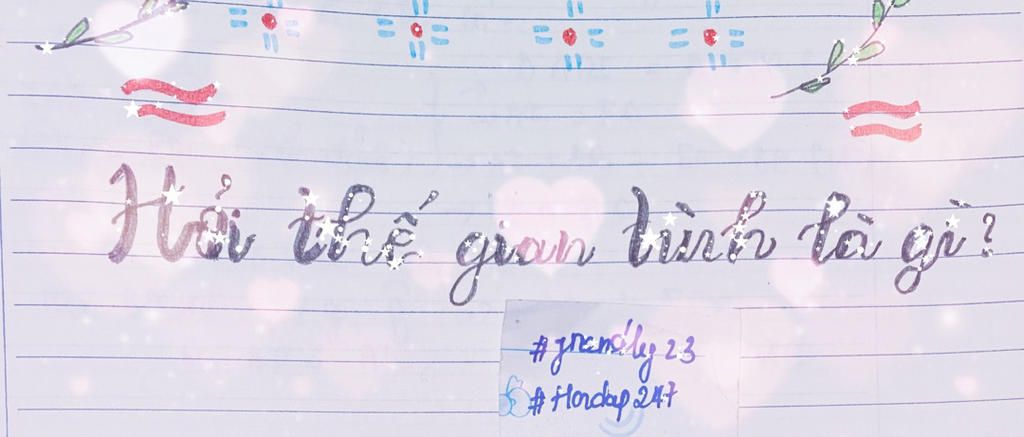 Hỏi thế gian tình là gì?
#Hoidap247